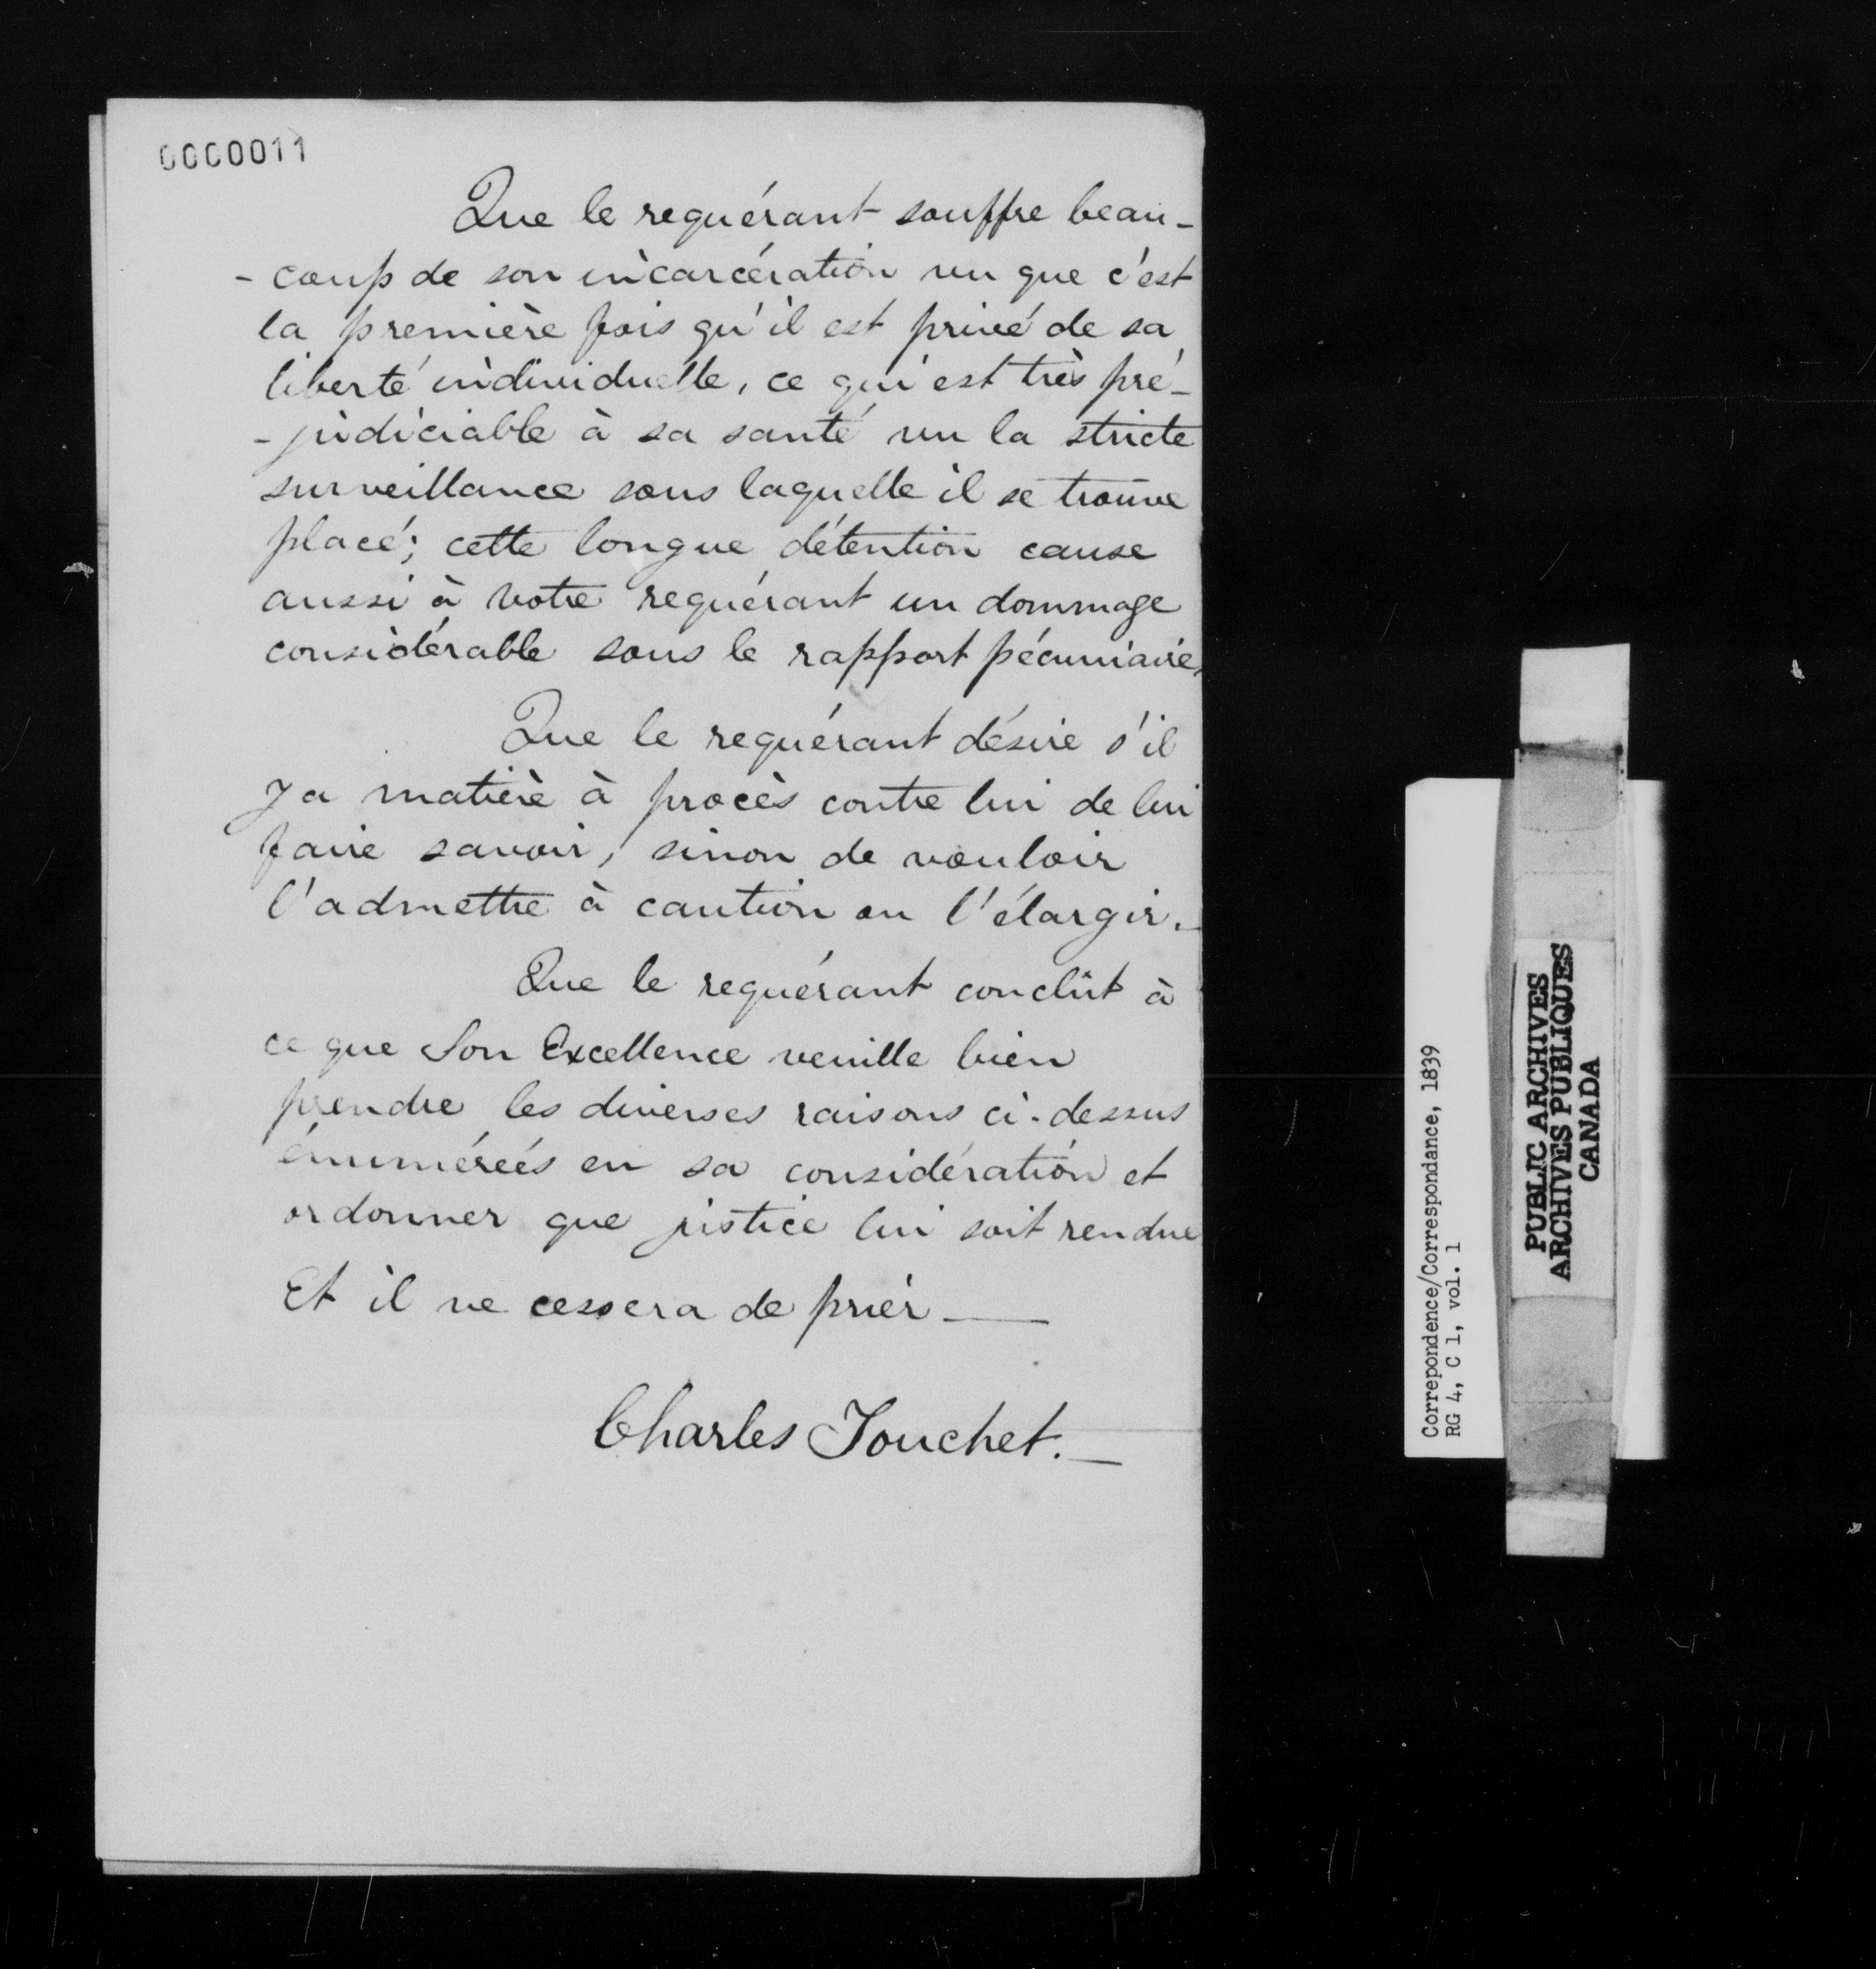 0000011
Que le requérant souffre beau-
- coup de son incarcération vu que c'est
la première fois qu'il est privé de sa
liberté individuelle, ce qui est très pré-
- judiciable à sa santé vu la stricte
surveillance sous laquelle il se trouve
placé; cette longue détention cause
aussi à votre requérant un dommage
considérable sous le rapport pécuniaire,
Que le requérant désire s'il
y a matière à procès contre lui de lui
faire savoir, sinon de vouloir
l'admettre à caution ou l'élargir.
Que le requérant conclût à
ce que Son Excellence veuille bien
prendre les diverses raisons ci-dessus
énumérées en sa considération et
ordonner que justice lui soit rendue
Et il ne cessera de prier —
Charles Touchet. —
Correpondence/Correspondance, 1839
RG 4, C 1, vol. 1
PUBLIC ARCHIVES
ARCHIVES PUBLIQUES
CANADA